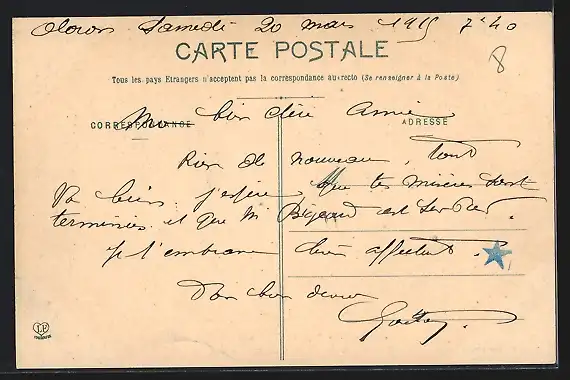 Oloron Samedi 20 mars 1915 7h40
CARTE POSTALE
8
Tous les pays Etrangers n'acceptent pas la correspondance au recto (Se renseigner à la Poste)
Ma bien chère Amie
CORRESPONDANCE
ADRESSE
Rien de nouveau, tout
va bien j'espère que tes misères sont
terminées et que Mr est
je t'embrasse bien affectueusement.
Ton bien dévoué
LF
TOULOUSE